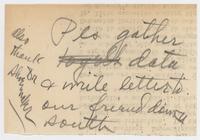 Pls gather
data
& write letter to
our friend down
south
also
thank
Dr